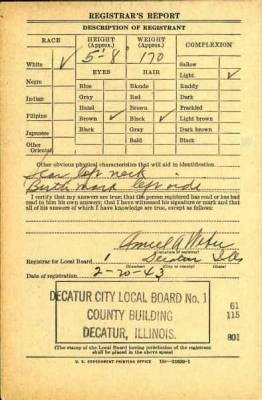 REGISTRAR'S REPORT
DESCRIPTION OF REGISTRANT
RACE HEIGHT (Approx.) WEIGHT (Approx.) COMPLEXION
White ✓ 5'-8" 170 Sallow
EYES HAIR Light ✓
Negro Blue Blonde Ruddy
Indian Gray Red Dark
Hazel Brown Freckled
Filipino Brown ✓ Black ✓ Light brown
Japanese Black Gray Dark brown
Other Bald Black
Oriental
Other obvious physical characteristics that will aid in identification
Scar left neck
Birth mark left side
I certify that my answers are true; that the person registered has read or has had
read to him his own answers; that I have witnessed his signature or mark and that
all of his answers of which I have knowledge are true, except as follows:
Registrar for Local Board 1 Decatur Ills
(Number) (City or county) (State)
Date of registration 2-20-43
DECATUR CITY LOCAL BOARD No. 1
COUNTY BUILDING
DECATUR, ILLINOIS.
61
115
801
(The stamp of the Local Board having jurisdiction of the registrant
shall be placed in the above space)
U. S. GOVERNMENT PRINTING OFFICE